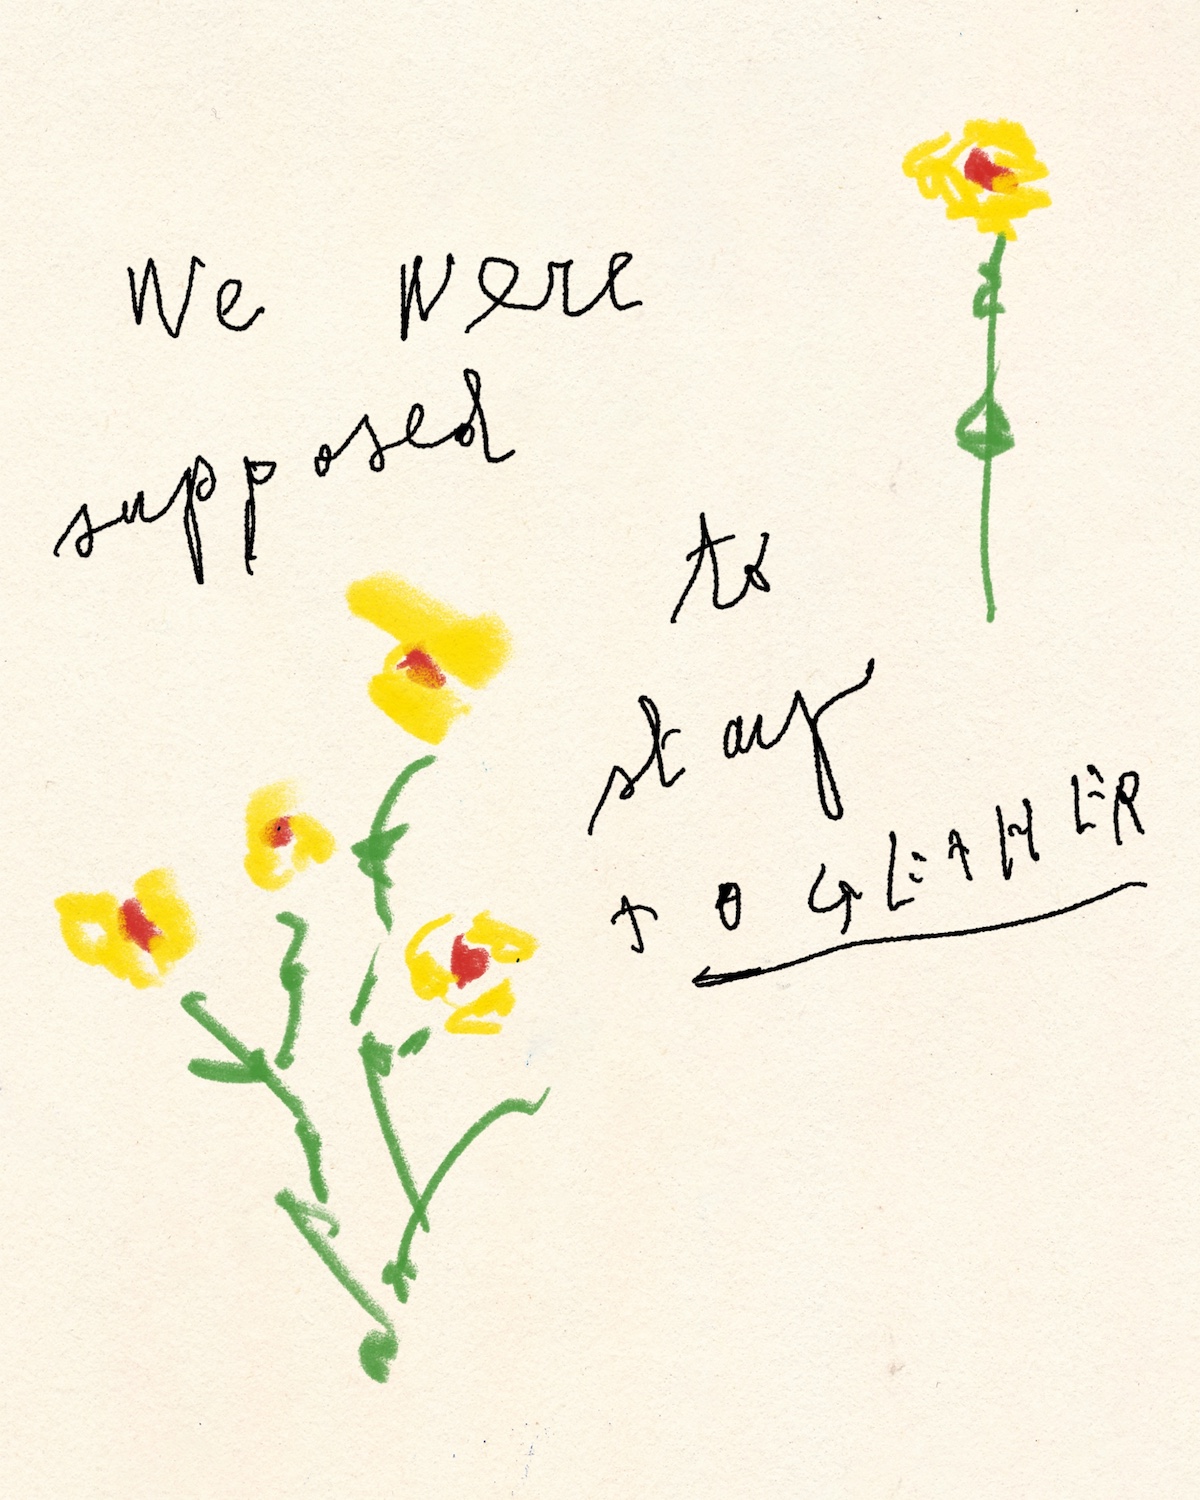 We were
supposed
to
stay
TOGETHER